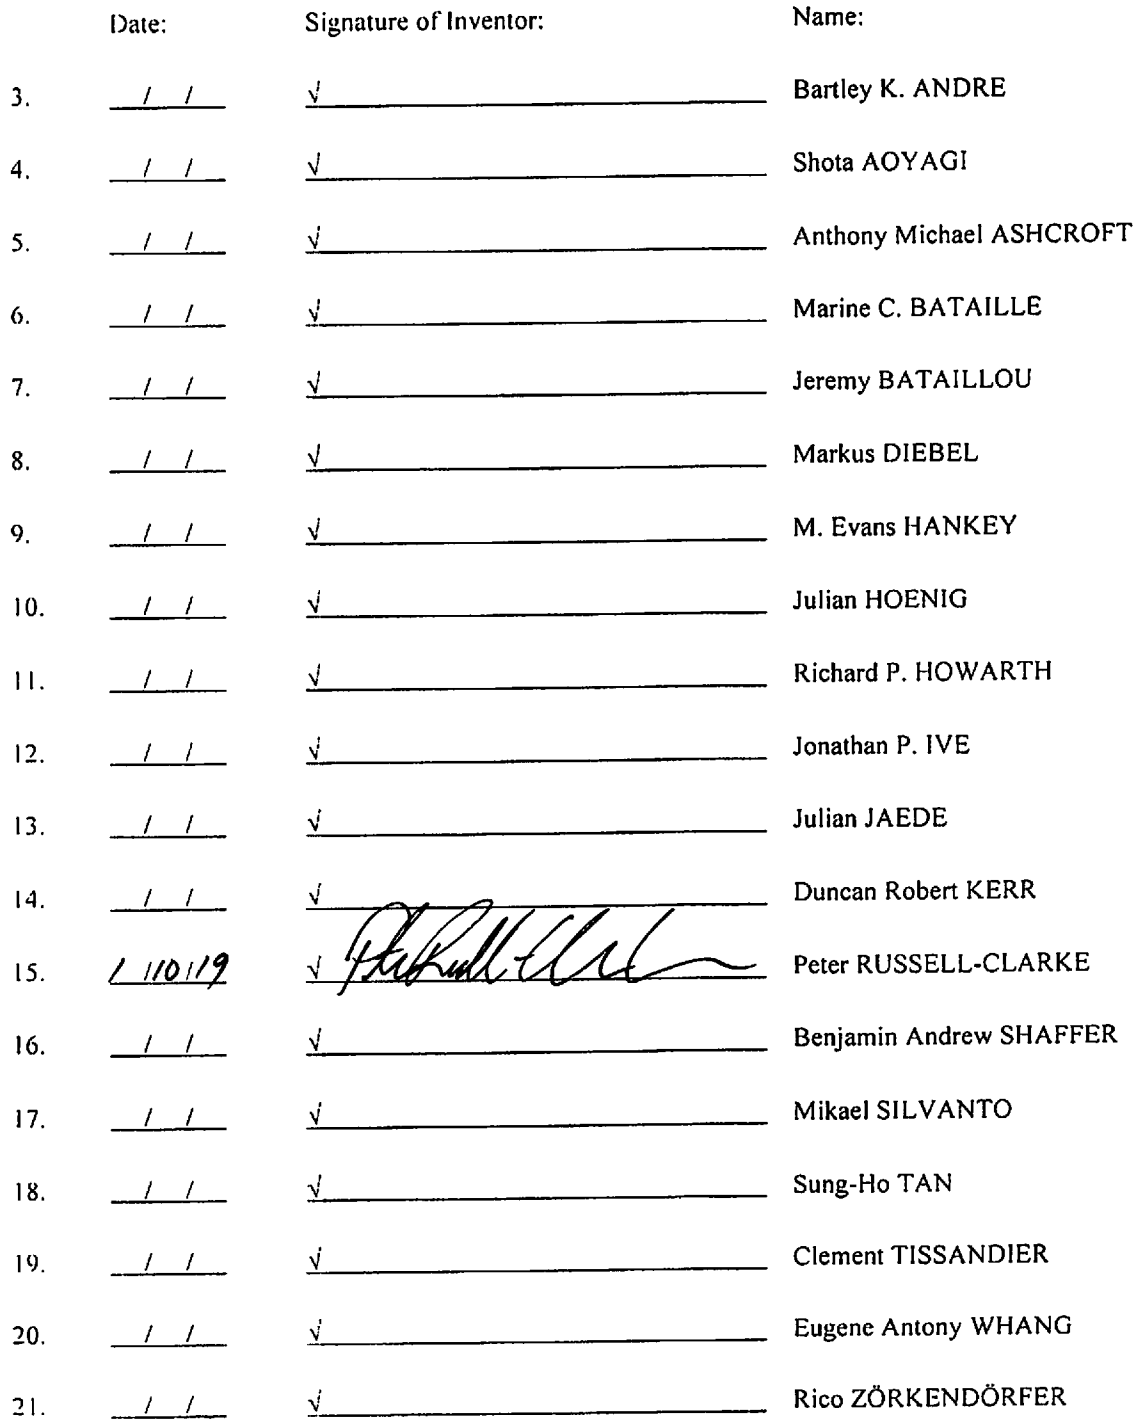 Date: Signature of Inventor: Name:
3. / / √ Bartley K. ANDRE
4. / / √ Shota AOYAGI
5. / / √ Anthony Michael ASHCROFT
6. / / √ Marine C. BATAILLE
7. / / √ Jeremy BATAILLOU
8. / / √ Markus DIEBEL
9. / / √ M. Evans HANKEY
10. / / √ Julian HOENIG
11. / / √ Richard P. HOWARTH
12. / / √ Jonathan P. IVE
13. / / √ Julian JAEDE
14. / / √ Duncan Robert KERR
15. 1/10/19 √ Peter RUSSELL-CLARKE
16. / / √ Benjamin Andrew SHAFFER
17. / / √ Mikael SILVANTO
18. / / √ Sung-Ho TAN
19. / / √ Clement TISSANDIER
20. / / √ Eugene Antony WHANG
21. / / √ Rico ZÖRKENDÖRFER